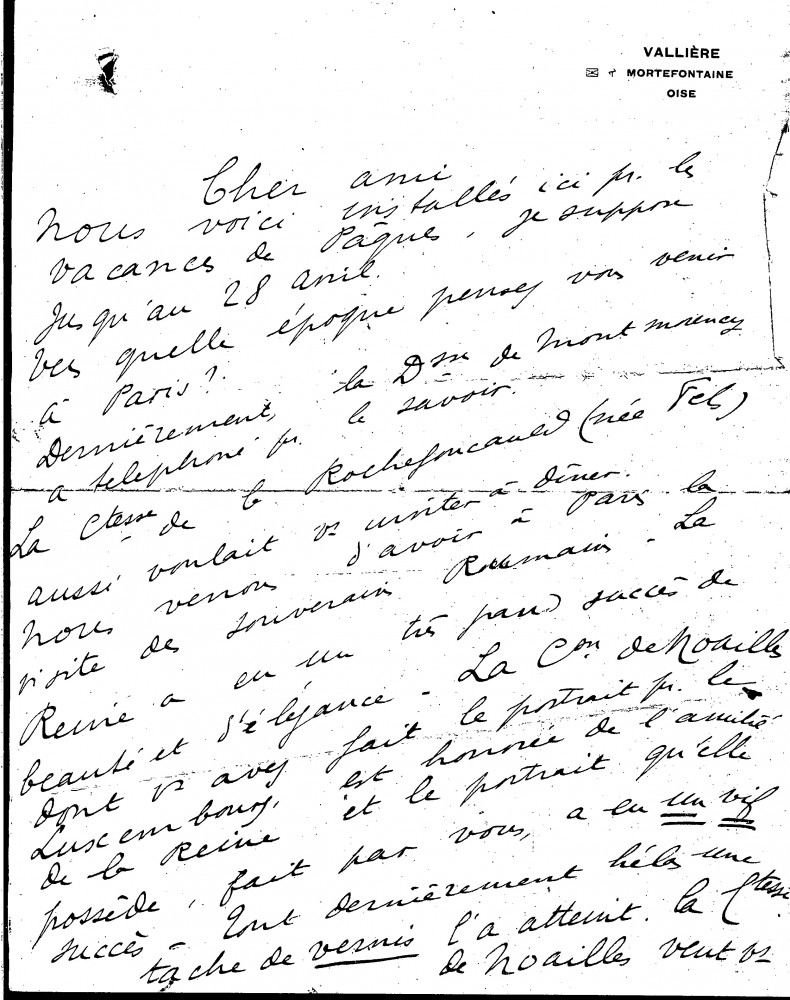 VALLIÈRE
MORTEFONTAINE
OISE
Cher ami
Nous voici installés ici pr. les
vacances de Pâques, je suppose
jusqu'au 28 avril.
Vers quelle époque pensez vous venir
à Paris?
Dernièrement, la Dsse de Montmorency
a telephoné pr. le savoir.
La Ctesse de la Rochefoucauld (née Fels)
aussi voulait vs inviter à dîner.
Nous venons d'avoir à Paris la
visite des souverains Roumains - La
Reine a eu un très grand succès de
beauté et d'élégance - La Ctsse de Noailles
dont vs avez fait le portrait pr. le
Luxembourg, est honorée de l'amitié
de la Reine et le portrait qu'elle
possède, fait par vous, a eu un vif
succès - Tout dernièrement hélas une
tache de vernis l'a atteint. La Ctesse
de Noailles veut vs